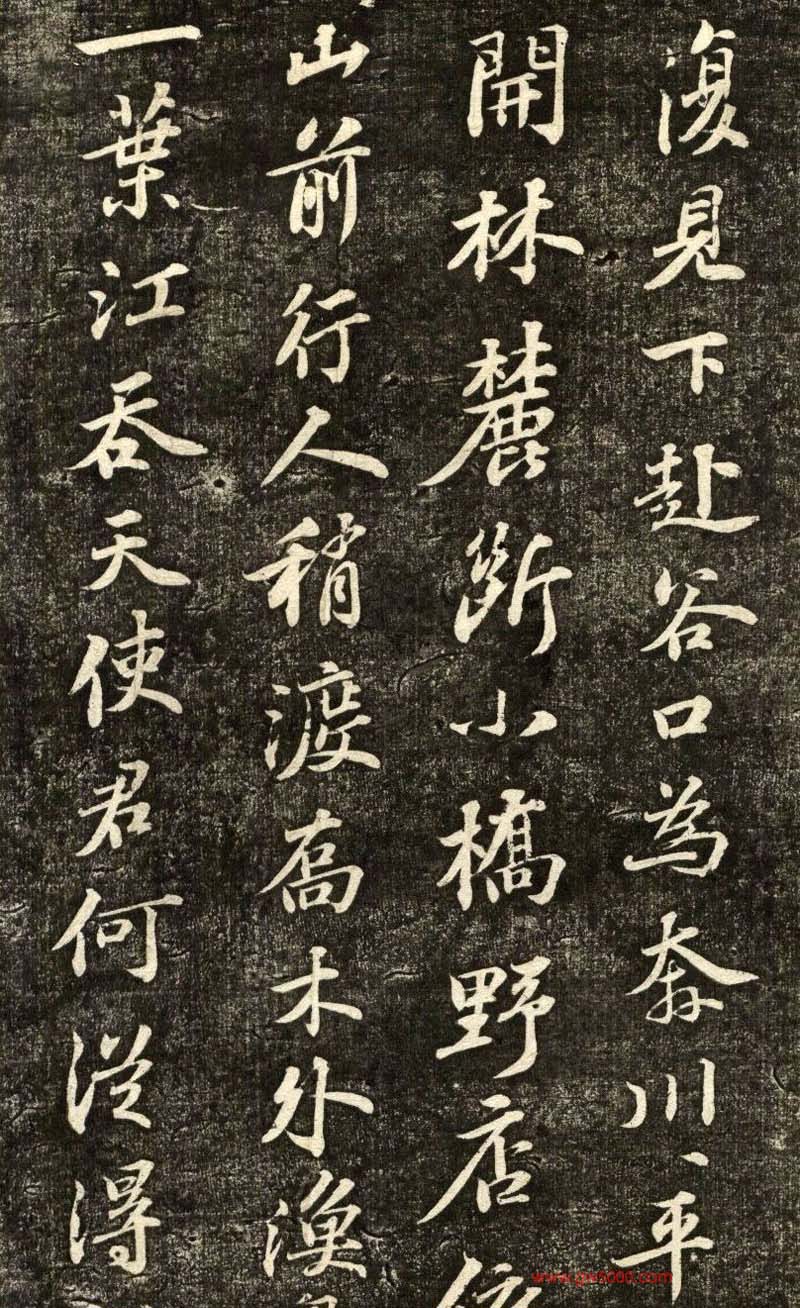 復見下赴谷口為奔川川平
開林麓斷小橋野店依
山前行人稍渡喬木外漁
一葉江吞天使君何從得